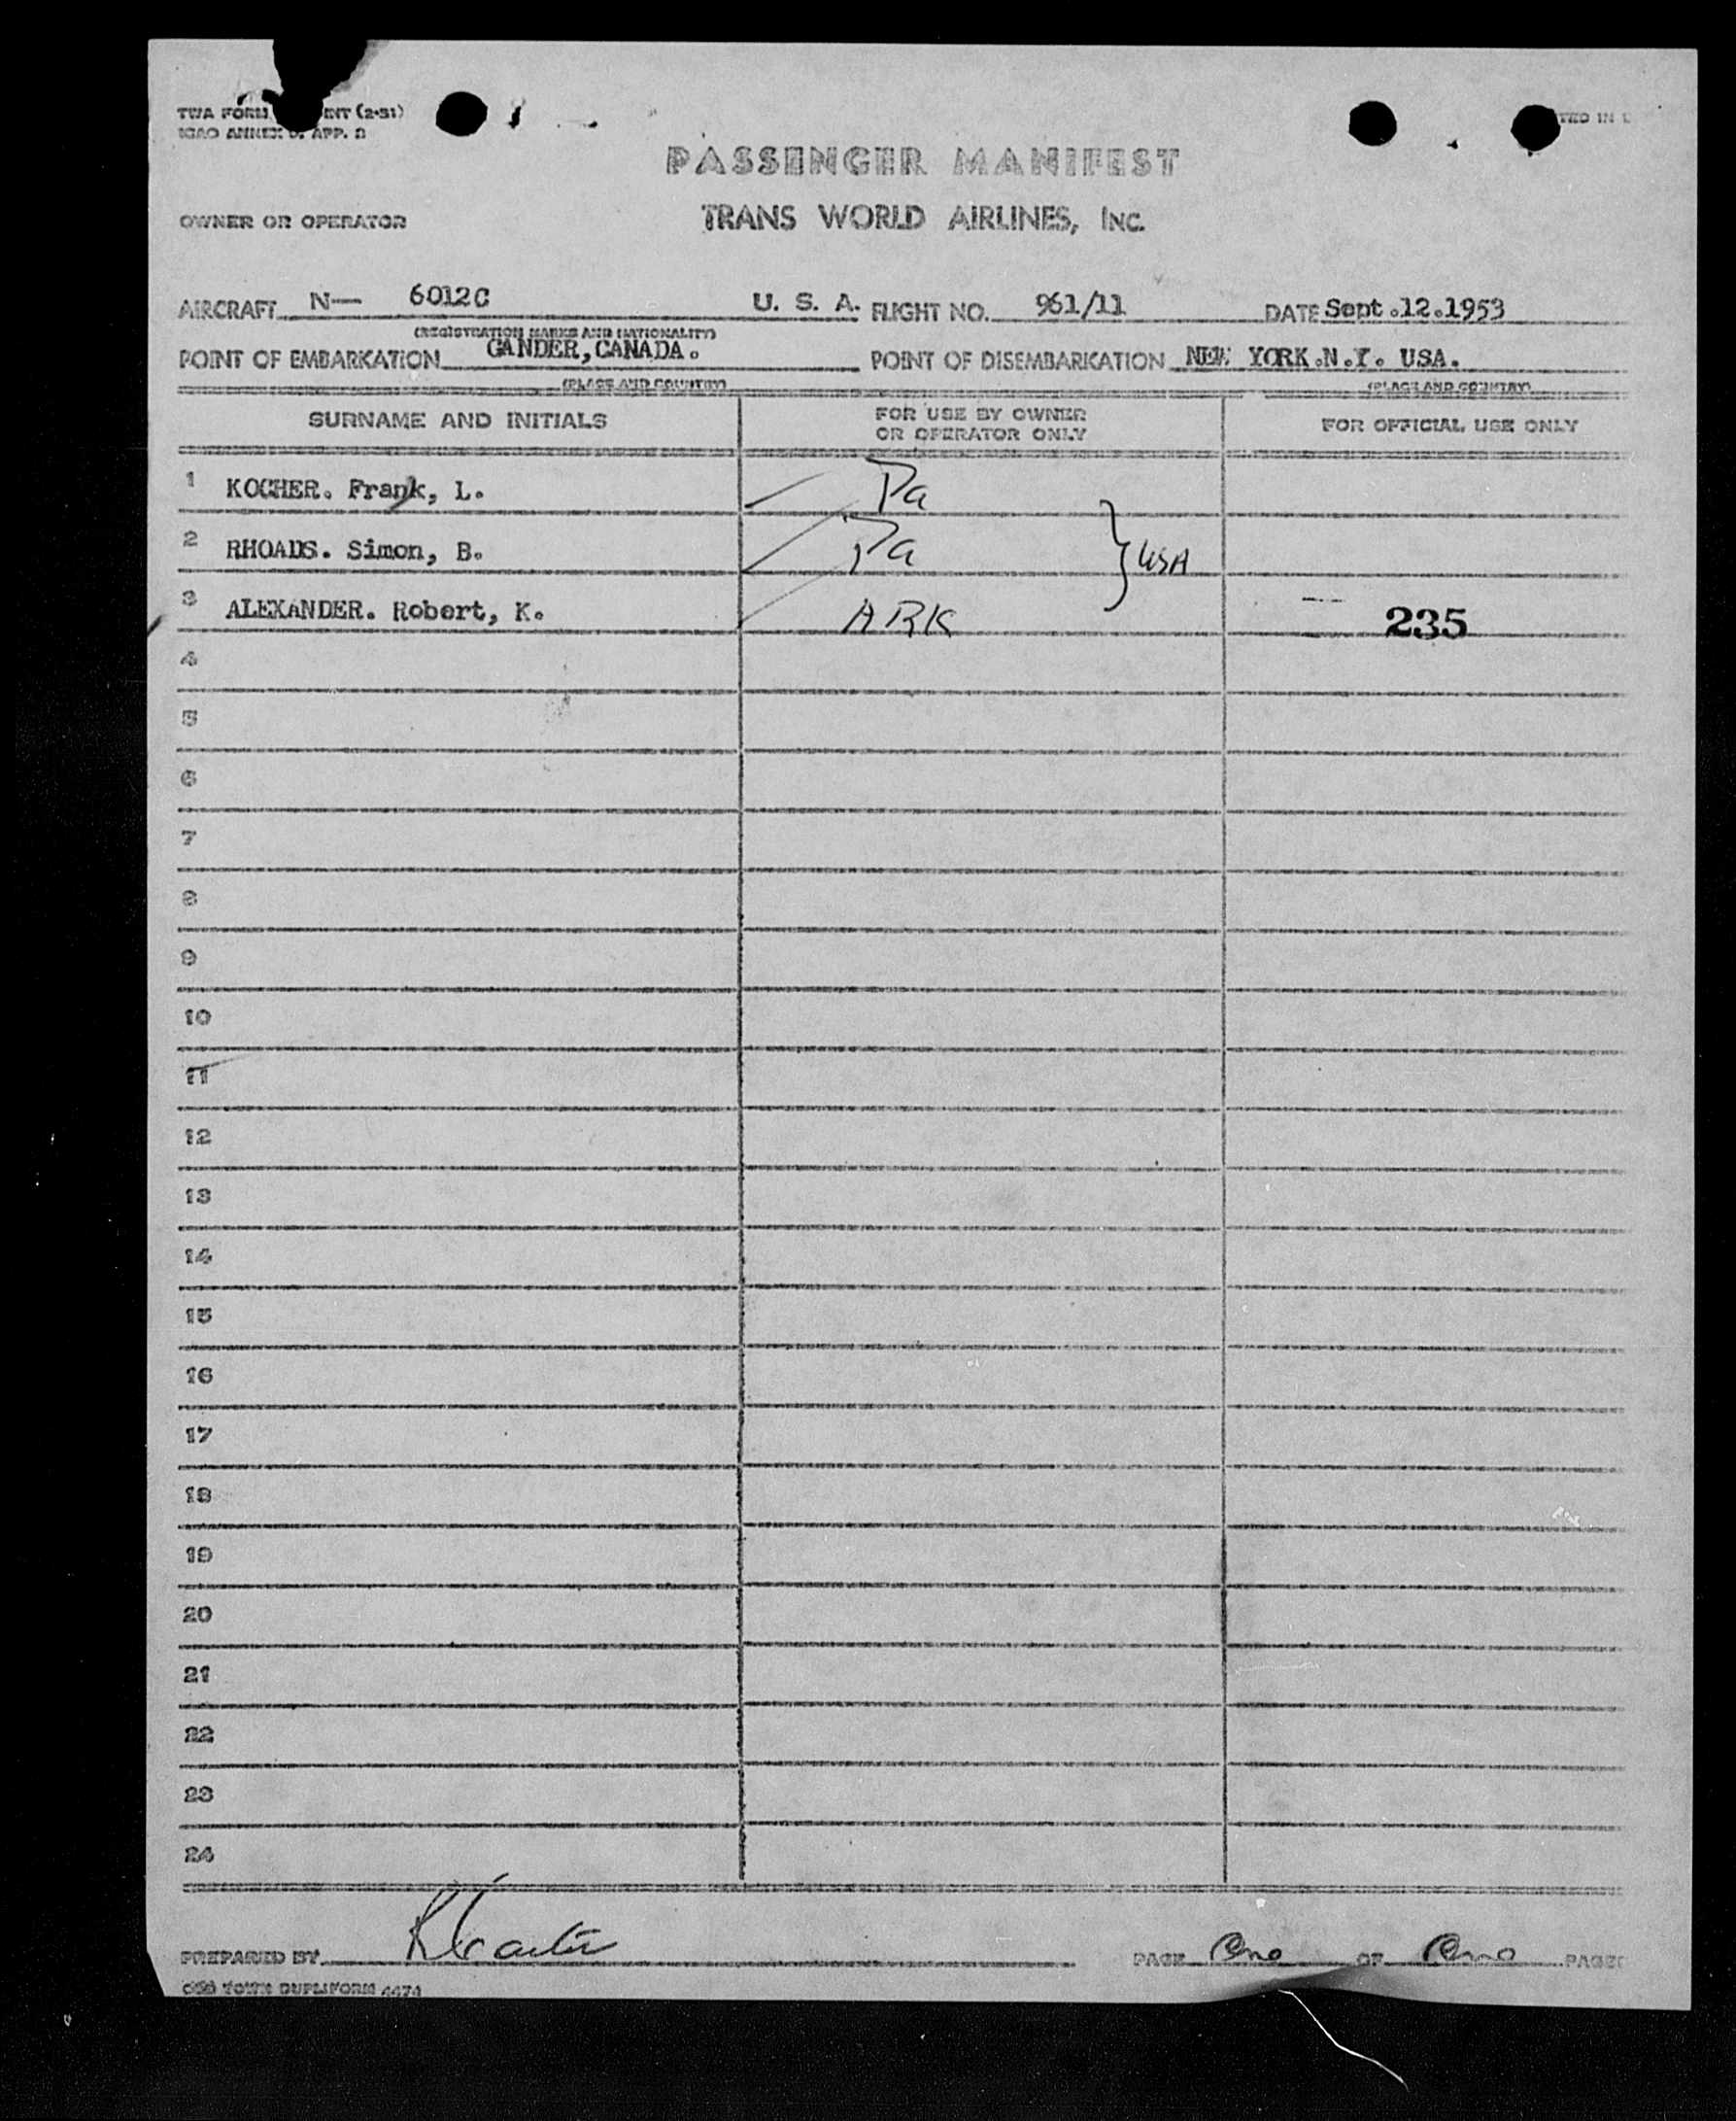 TWA FORM ENT (2-51)
ICAO ANNEX 9. APP. 3
TED IN U
PASSENGER MANIFEST
OWNER OR OPERATOR TRANS WORLD AIRLINES, INC.
AIRCRAFT N— 6012C U. S. A. FLIGHT NO. 961/11 DATE Sept.12.1953
(REGISTRATION MARKS AND NATIONALITY)
POINT OF EMBARKATION GANDER,CANADA. POINT OF DISEMBARKATION NEW YORK.N.Y. USA.
(PLACE AND COUNTRY) (PLACE AND COUNTRY)
SURNAME AND INITIALS FOR USE BY OWNER OR OPERATOR ONLY FOR OFFICIAL USE ONLY
1 KOCHER. Frank, L. Pa
2 RHOADS. Simon, B. Pa } USA
3 ALEXANDER. Robert, K. ARK 235
4
5
6
7
8
9
10
11
12
13
14
15
16
17
18
19
20
21
22
23
24
PREPARED BY R Carter PAGE One OF One PAGE
TOWN DUPLIFORM 4474